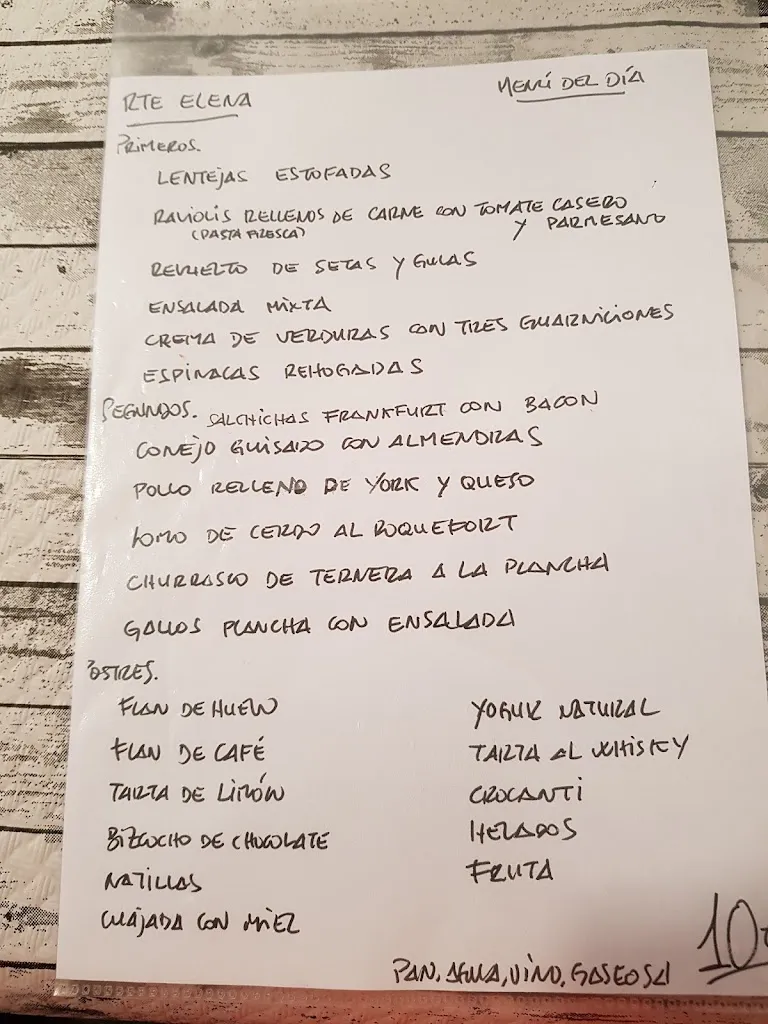 RTE ELENA
MENÚ DEL DÍA
PRIMEROS.
LENTEJAS ESTOFADAS
RAVIOLIS RELLENOS DE CARNE CON TOMATE CASERO
(PASTA FRESCA) Y PARMESANO
REVUELTO DE SETAS Y GULAS
ENSALADA MIXTA
CREMA DE VERDURAS CON TRES GUARNICIONES
ESPINACAS REHOGADAS
SEGUNDOS. SALCHICHAS FRANKFURT CON BACON
CONEJO GUISADO CON ALMENDRAS
POLLO RELLENO DE YORK Y QUESO
LOMO DE CERDO AL ROQUEFORT
CHURRASCO DE TERNERA A LA PLANCHA
GALLOS PLANCHA CON ENSALADA
POSTRES.
FLAN DE HUEVO
FLAN DE CAFÉ
TARTA DE LIMÓN
BIZCOCHO DE CHOCOLATE
NATILLAS
CUAJADA CON MIEL
YOGUR NATURAL
TARTA AL WHISKY
CROCANTI
HELADOS
FRUTA
10
PAN, AGUA, VINO, GASEOSA